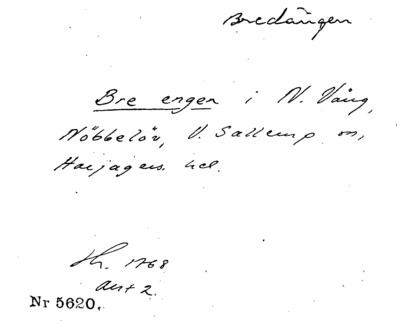 Bredängen
Bre engen i N. Vång,
Nöbbelöv, V. Sallerup sn,
Harjagers hd.
Sk. 1768
akt 2.
Nr 5620.